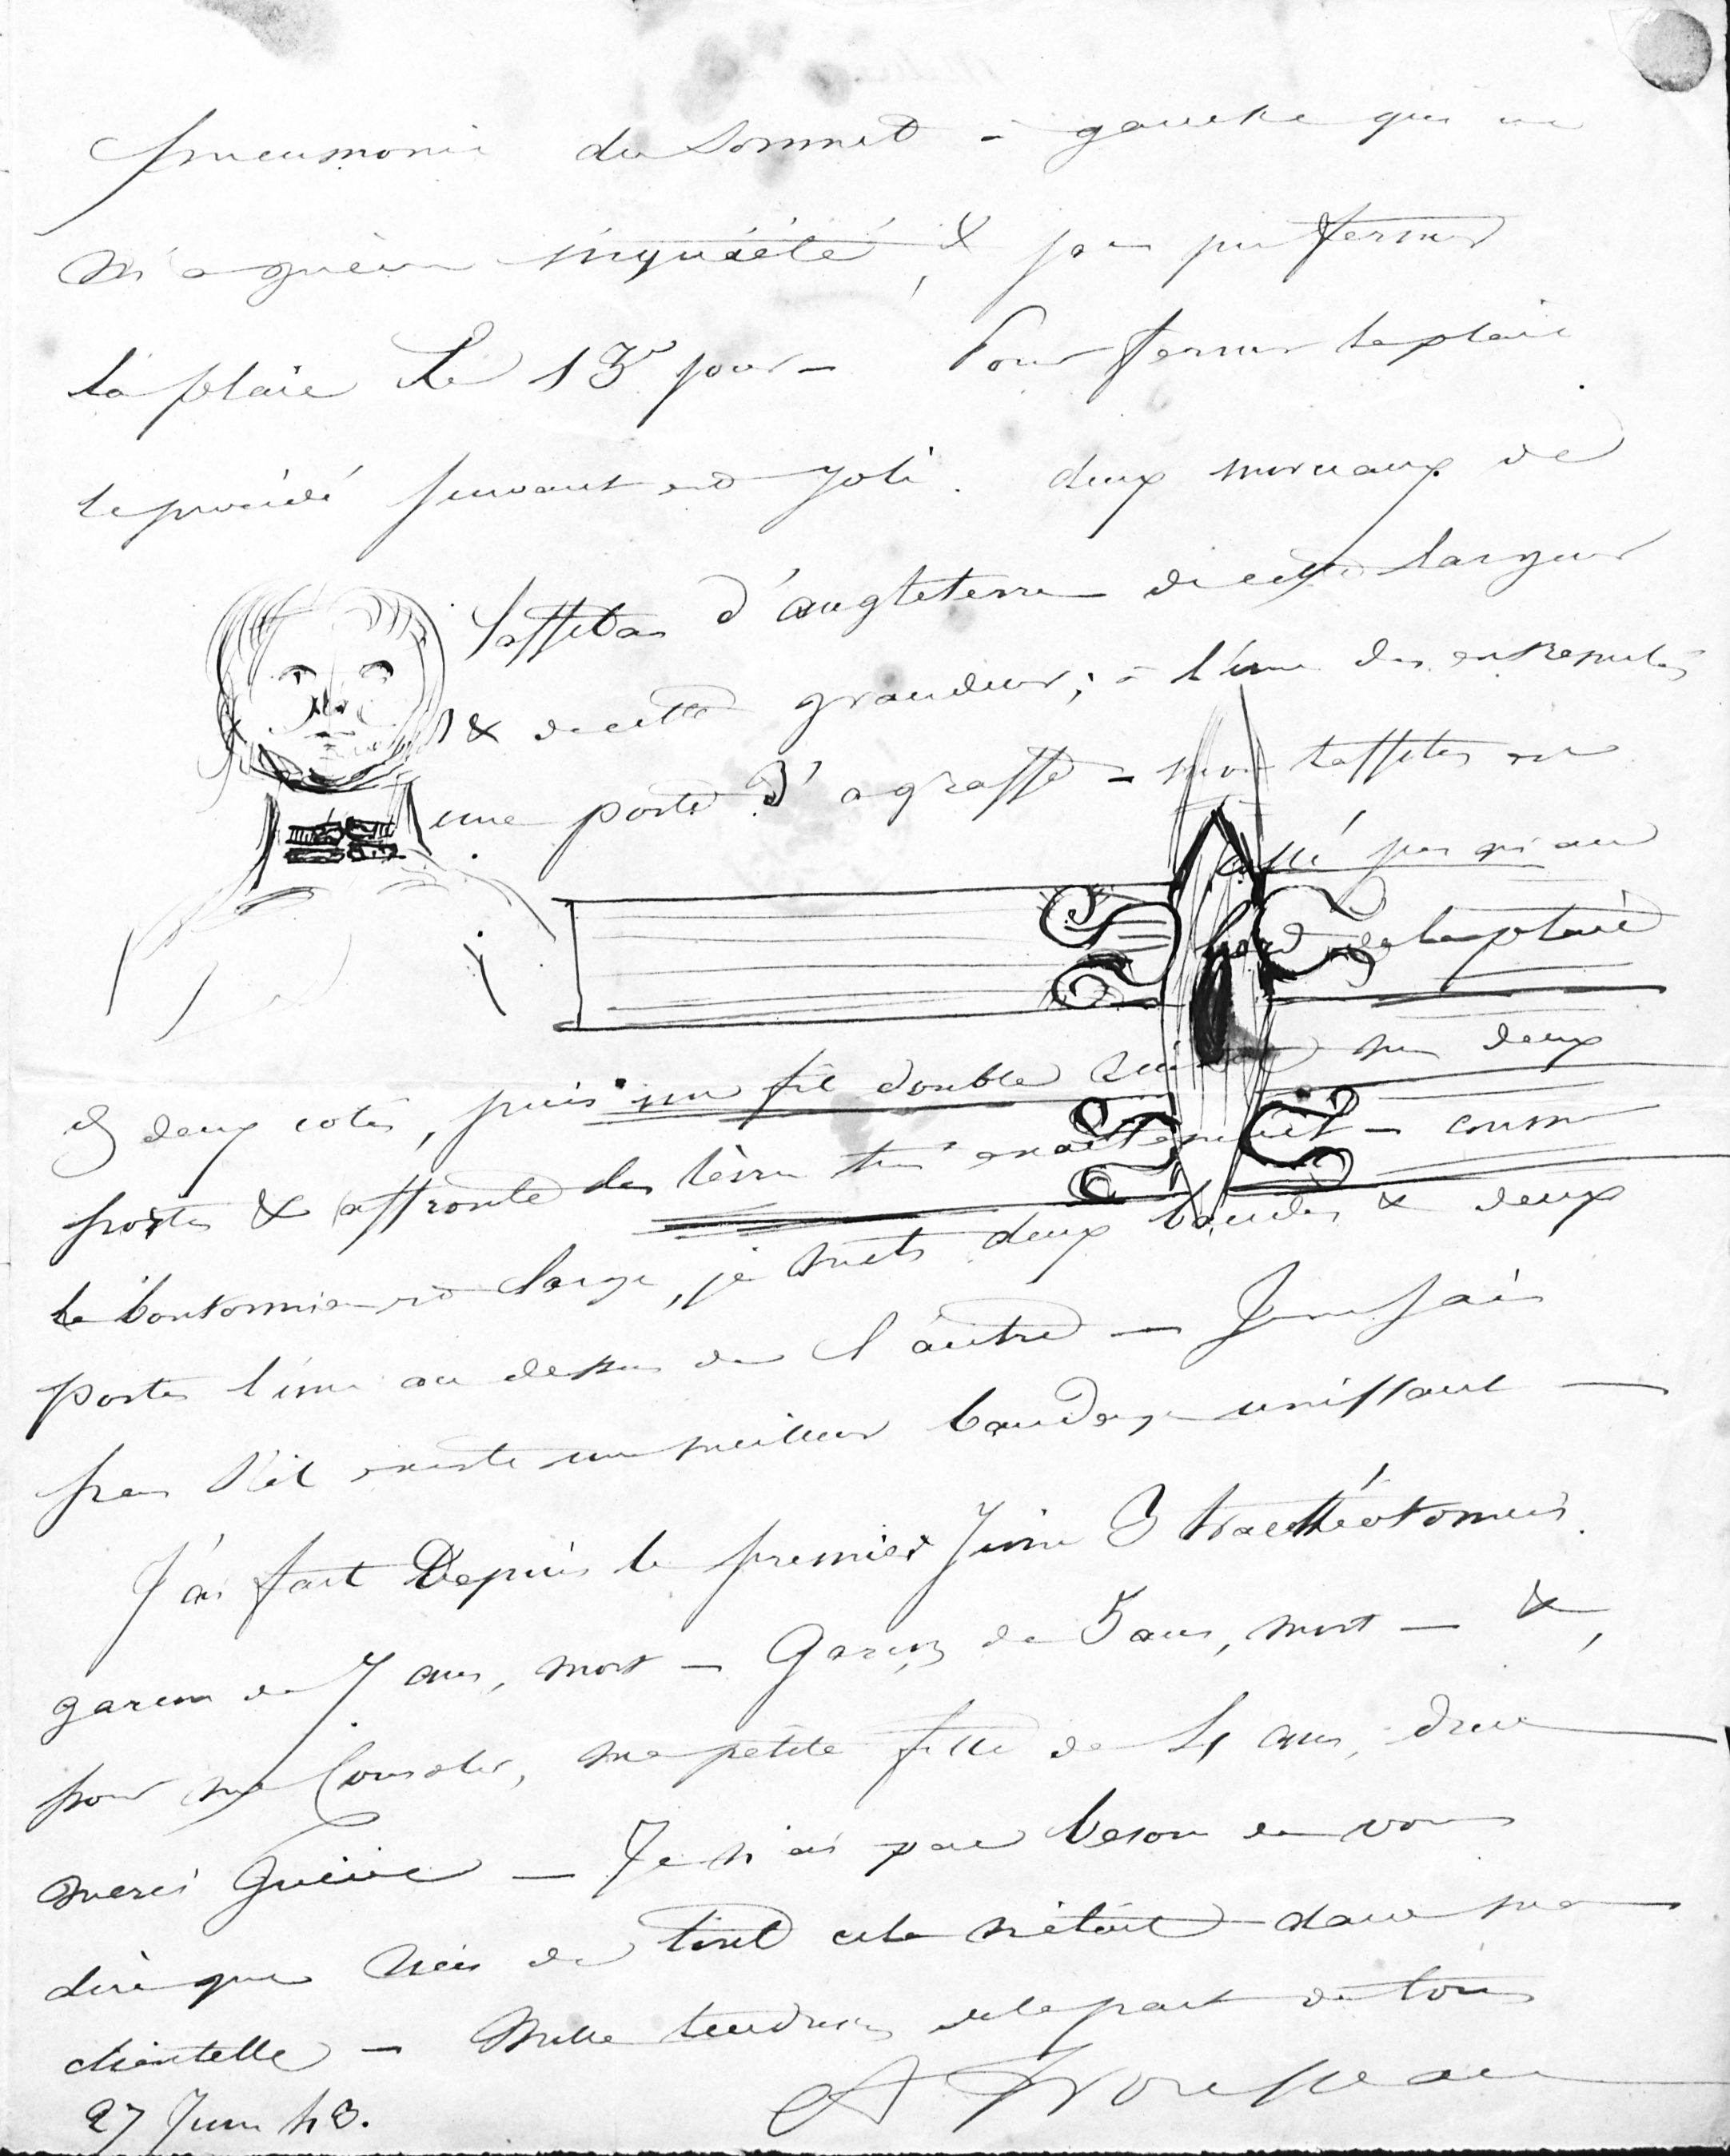 pneumonie du Sommet à gauche qui ne
m'a guère inquiété, & j'ai pu fermer
la plaie le 13e jour — Pour fermer la plaie
le procédé suivant est joli. deux morceaux de
taffetas d'angleterre de cette largeur
& de cette grandeur; à l'une des extremités
une porte d'agraffe — mon taffetas est
collé jusqu'au
bord de la plaie
des deux cotés, puis un fil double les deux
portes & affronte les lèvres très exactement — comme
la boutonnière est large, je mets deux bandes & deux
portes l'une au dessus de l'autre — Je ne sais
pas s'il existe un meilleur bandage unissant —
J'ai fait Depuis le premier Juin 3 trachéotomies.
garçon de 7 ans, mort — Garçon de 5 ans, mort — &,
pour me Consoler, ma petite fille de 4 ans, dieu
merci Guérie — Je n'ai pas besoin de vous
dire que rien de tout cela n'était dans ma
clientelle — Mille tendresses de la part de tous
A Trousseau
27 Juin 43.